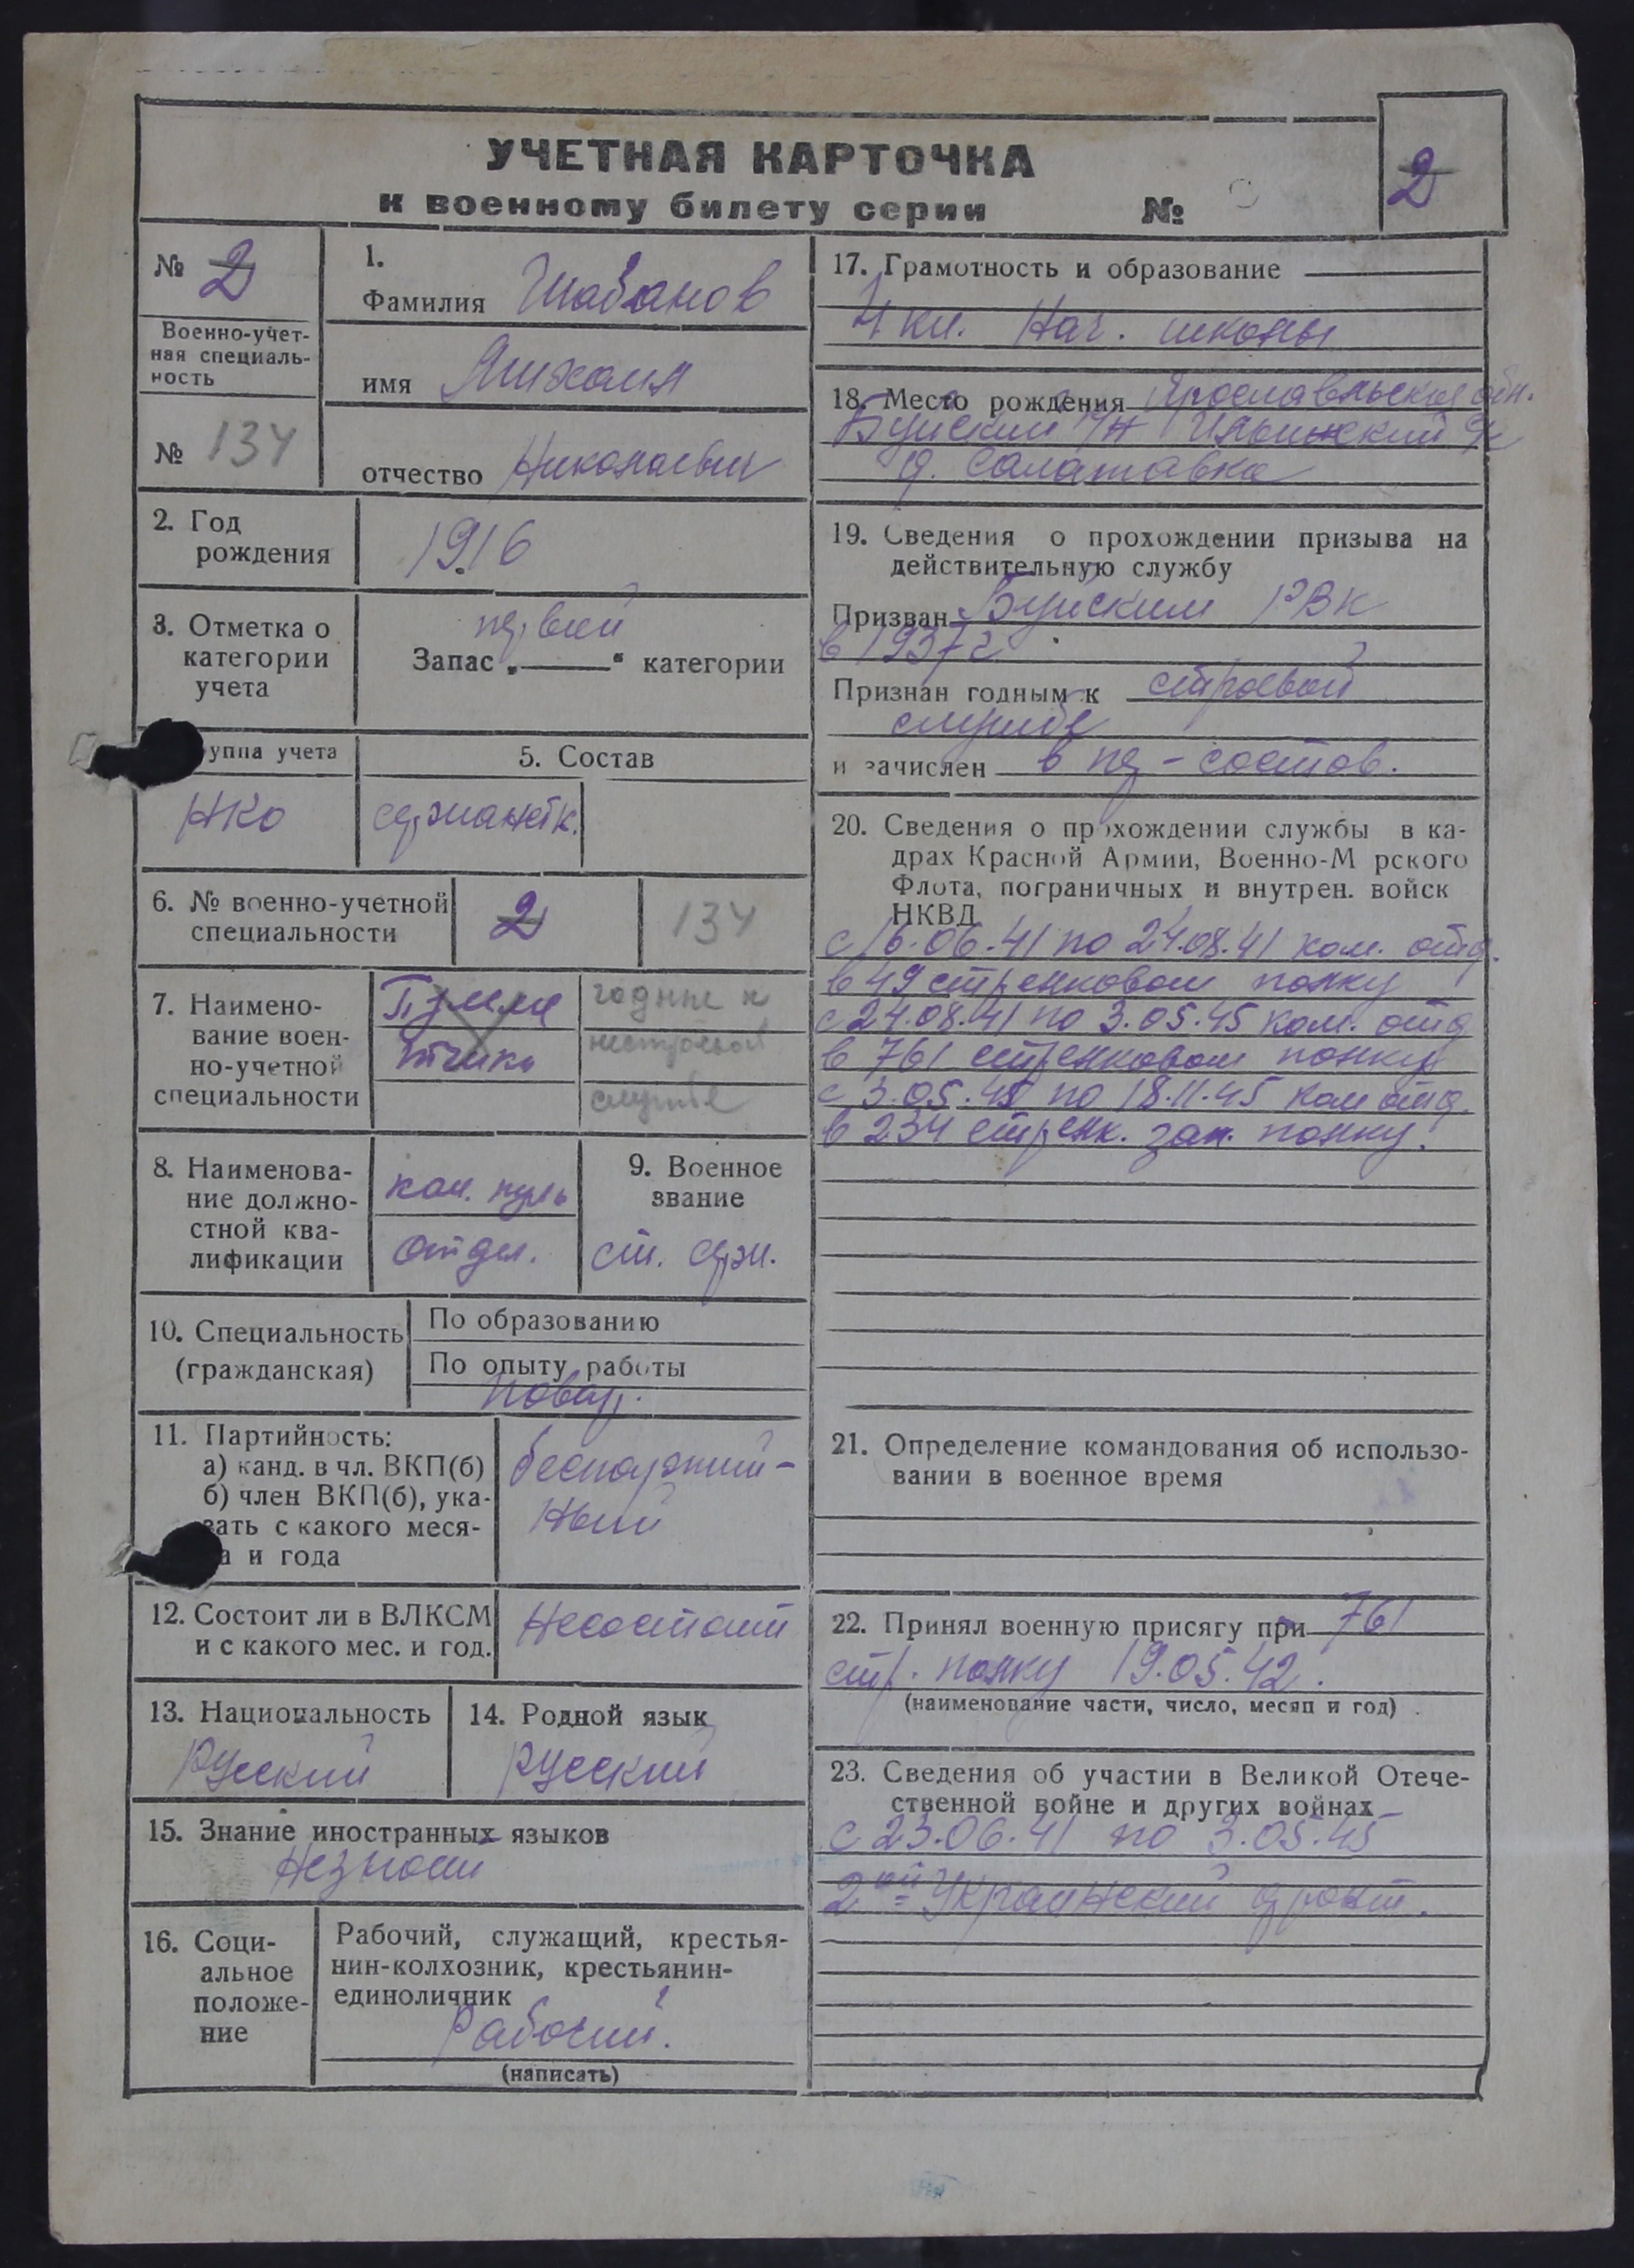 УЧЕТНАЯ КАРТОЧКА
к военному билету серии №
2
№ 2
Военно-учет-
ная специаль-
ность
№ 134
1.
Фамилия Шабанов
имя Михаил
отчество Николаевич
2. Год
рождения
1916
3. Отметка о
категории
учета
первой
Запас „ “ категории
уппа учета
НКО
5. Состав
сержантск.
6. № военно-учетной
специальности
2
134
7. Наимено-
вание воен-
но-учетной
специальности
Пулеме
тчики
годные к
нестроевой
службе
8. Наименова-
ние должно-
стной ква-
лификации
ком. пуль
отдел.
9. Военное
звание
ст. серж.
10. Специальность
(гражданская)
По образованию
По опыту работы
Повар.
11. Партийность:
а) канд. в чл. ВКП(б)
б) член ВКП(б), ука-
зать с какого меся-
а и года
беспартий-
ный
12. Состоит ли в ВЛКСМ
и с какого мес. и год.
Несостоит
13. Национальность
Русский
14. Родной язык
Русский
15. Знание иностранных языков
Незнает
16. Соци-
альное
положе-
ние
Рабочий, служащий, крестья-
нин-колхозник, крестьянин-
единоличник
Рабочий.
(написать)
17. Грамотность и образование
4 кл. Нач. школы
18. Место рождения Ярославльская обл.
Буйский р/н Ильинский с/с
д. Салатавка
19. Сведения о прохождении призыва на
действительную службу
Призван Буйским РВК
в 1937 г.
Признан годным к строевой
службе
и зачислен в ряд-состав.
20. Сведения о прохождении службы в ка-
драх Красной Армии, Военно-М рского
Флота, пограничных и внутрен. войск
НКВД
с 16.06.41 по 24.08.41 ком. отд.
в 49 стрелковом полку
с 24.08.41 по 3.05.45 ком. отд
в 761 стрелковом полку
с 3.05.45 по 18.11.45 ком отд.
в 234 стрелк. зап. полку.
21. Определение командования об использо-
вании в военное время
22. Принял военную присягу при 761
стр. полку 19.05.42.
(наименование части, число, месяц и год)
23. Сведения об участии в Великой Отече-
ственной войне и других войнах
с 23.06.41 по 3.05.45
2ой Украинский фронт.